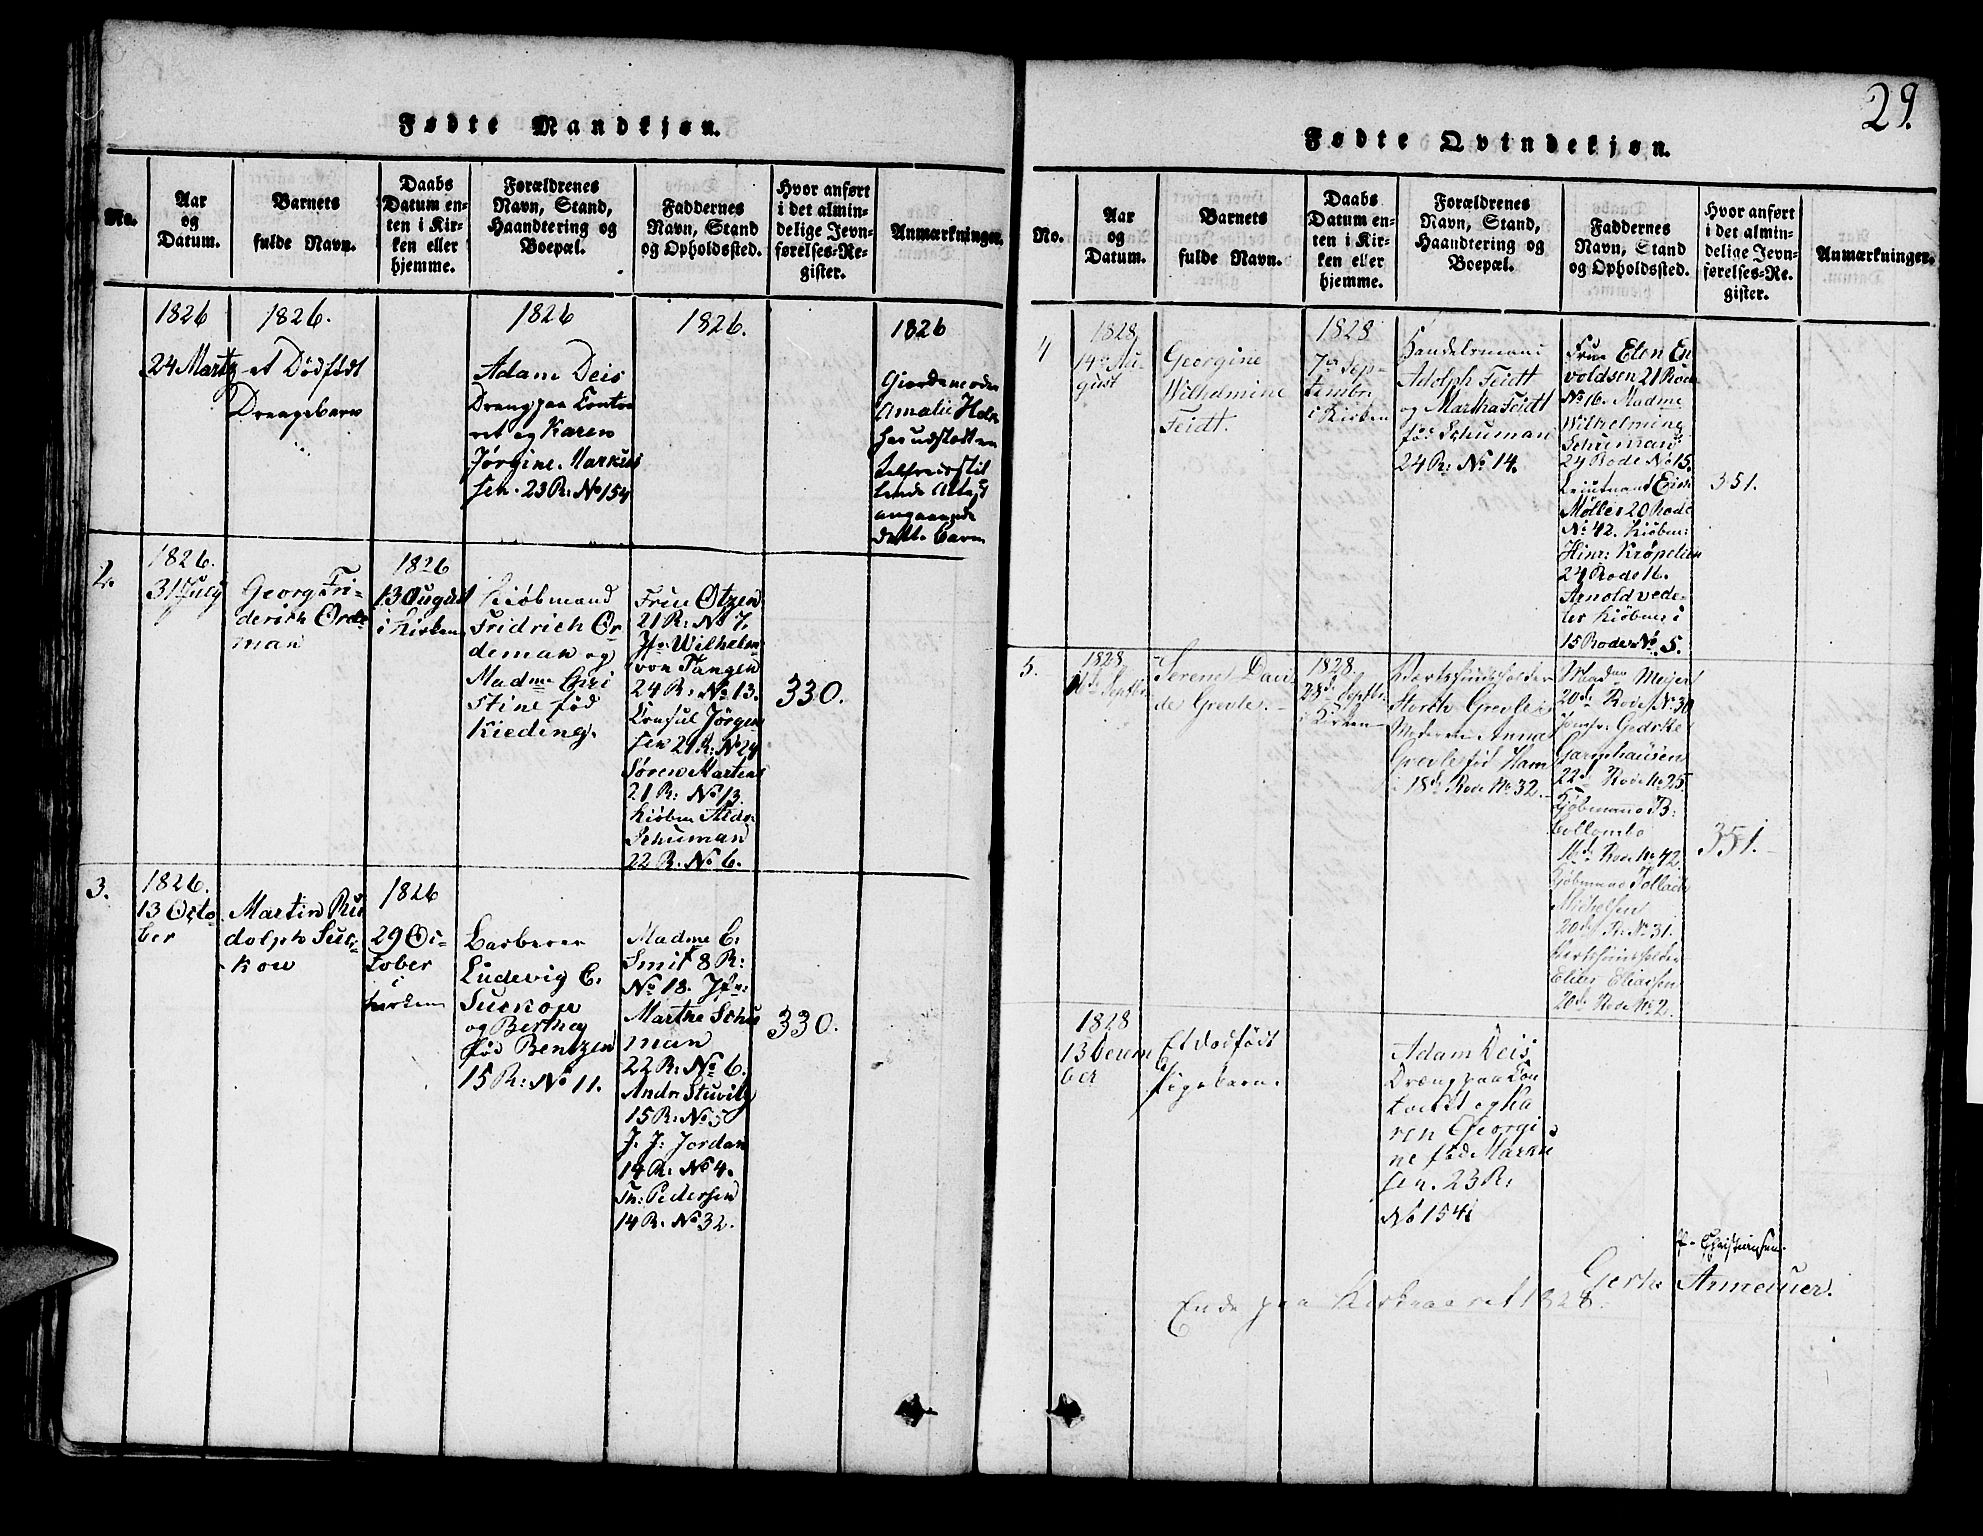 29.
Fødte Mandkjøn.
No.
Aar
og
Datum.
Barnets
fulde Navn.
Daabs
Datum en-
ten i Kir-
ken eller
hjemme.
Forældrenes
Navn, Stand,
Haandtering og
Boepæl.
Faddernes
Navn, Stand
og Opholdssted.
Hvor anført
i det almin-
delige Jevn-
førelses-Re-
gister.
Anmærkninger.
1826
24 Martz
1826.
et Dødfødt
Drengebarn
1826
Adam Deis
Dreng paa Conto
ret og Karen
Jørgine Markus
sen. 23 R: No 154
1826.
1826
Giordemoder
Amalie Holk
har udstedt en
tilfredsstil
lende Attest
angaaende
dette barn
2.
1826.
31 July
Georg Fri-
derich Orde
man
1826
13 August
i Kirken
Kiøbmand
Fridrich Or
deman og
Madme Chri
stine fød
Kieding.
Frue Otzen
21 R: No 7.
Jfr Wilhelm
von Tangen
24 R: No 13.
Consul Jørgen
sen 21 R: No 24
Søren Martens
21 R: No 13
Kiøbm
Schuman
22 R. No 6.
330.
3.
1826.
13 Octo
ber
Martin Ru
dolph Suc-
kow
1826
29 Oc-
tober
i
Kirken
Barberer
Ludevig C.
Suckow
og Bertha
fød Bentzen
15 R: No 11.
Madme C.
Smit 8 R:
No 18. Jfr:
Marthe Schu
man
22 R: No 6.
Andr Stuvitz
15 R: No 5
J. J: Jordan
14 R. No 4.
Th: Pedersen
14 R. No 32.
330.
Fødte Qvindekjøn.
No.
Aar
og
Datum.
Barnets
fulde Navn.
Daabs
Datum en-
ten i Kir-
ken eller
hjemme.
Forældrenes
Navn, Stand,
Haandtering og
Boepæl.
Faddernes
Navn, Stand
og Opholdssted.
Hvor anført
i det almin-
delige Jevn-
førelses-Re-
gister.
Anmærkninger.
4
1828
14de Au-
gust
Georgine
Wilhelmine
Feidt.
1828
7de Sep-
tembr
i Kirken
Handelsmand
Adolph Feidt
og Martha Feidt
fød Schuman
24 R: No 14.
Frue Elen En
voldsen 21 Rode
No 16. Madme
Wilhelmine
Schuman
24 Rode No 15.
Leiutnant Erich
Møller 20 Rode
No 42. Kiøbm:
Hinr: Krøpelien
24 Rode 16.
Arnold vede-
ler Kiøbm: i
15 Rode No. 5.
351.
5.
1828
Septbr
Serene Davi
de Greve.
1828.
28de Septbr
i Kirken
Vertshuusholder
Storch Greve
Moderen Anna
Greve fød Ham
18de Rode No 32.
Madme Meyer
20de Rode No 30
Jomfr. Gedske
Garmhausen
22de Rode No 25
Kjøbmand B:
16de Rode No 42
Kjøbmand Tollach
Michelsen
20de R: No 31.
Vertshuusholder
Elias Eliassen
20de Rode No 2.
351.
1828
13 Decem
ber
Et dødfødt
Pigebarn.
Adam Deis
Dreng paa Con
toret og Ka
ren Georgi
ne fød Markus
sen. 23 R:
No 154
P. Christiansen.
Gerke Ameluer.
Ende paa Kirkeaaret 1828.